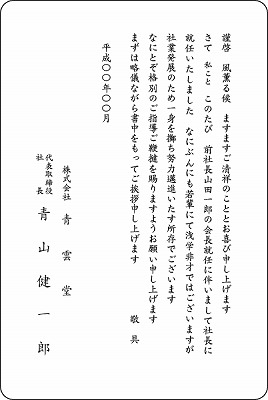 謹啓　風薫る候　ますますご清祥のこととお喜び申し上げます
さて　私こと　このたび　前社長山田一郎の会長就任に伴いまして社長に
就任いたしました　なにぶんにも若輩にて浅学非才ではございますが
社業発展のため一身を擲ち努力邁進いたす所存でございます
なにとぞ格別のご指導ご鞭撻を賜りますようお願い申し上げます
まずは略儀ながら書中をもってご挨拶申し上げます　敬具
平成〇〇年〇〇月
株式会社　青雲堂
代表取締役
社長　青山健一郎